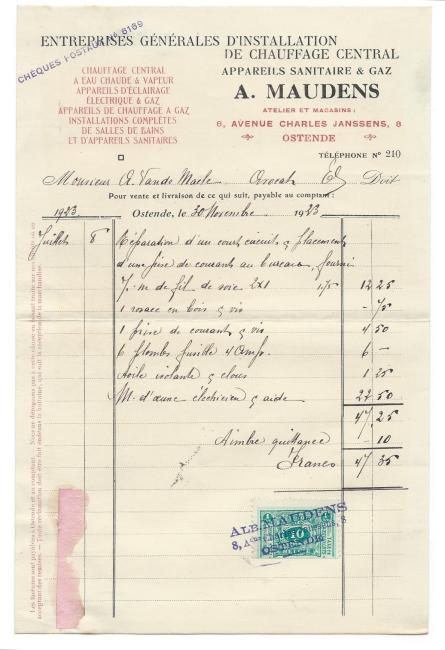 CHÈQUES POSTAUX N° 8189
ENTREPRISES GÉNÉRALES D'INSTALLATION
DE CHAUFFAGE CENTRAL
APPAREILS SANITAIRE & GAZ
A. MAUDENS
ATELIER ET MAGASINS :
8, AVENUE CHARLES JANSSENS, 8
OSTENDE
CHAUFFAGE CENTRAL
A EAU CHAUDE & VAPEUR
APPAREILS D'ÉCLAIRAGE
ÉLECTRIQUE & GAZ
APPAREILS DE CHAUFFAGE A GAZ
INSTALLATIONS COMPLÈTES
DE SALLES DE BAINS
ET D'APPAREILS SANITAIRES
TÉLÉPHONE N° 210
Monsieur A. Vande Maele Avocat Doit
Pour vente et livraison de ce qui suit, payable au comptant :
1923 Ostende, le 30 Novembre 1923
Juillet 8 Réparation d'un court circuit & placement
d'une prise de courants au bureau, fourni
7 m de fil de soie 2x1 175 12 25
1 rosace en bois & vis - 75
1 prise de courant & vis 4 50
6 plombs fusille 4 Amp. 6 -
toile isolante & clous 1 25
M. d'œuvre électricien & aide 22 50
47,25
Timbre quittance - 10
Francs 47 35
ALB. MAUDENS
OSTENDE
10